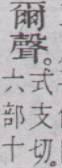 爾聲。
式支切。
六部十